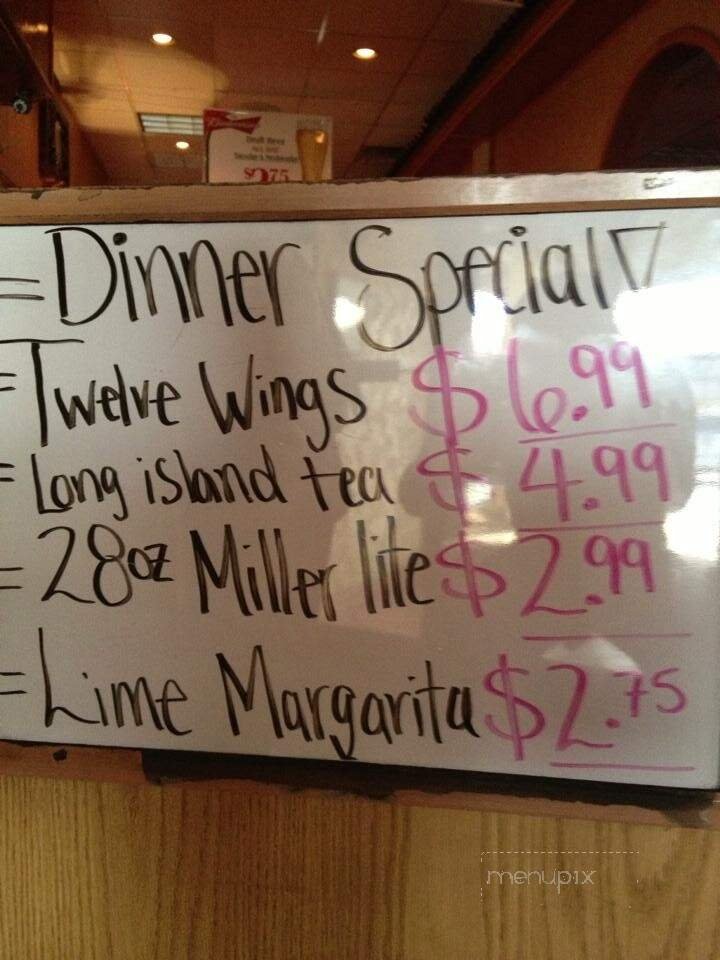 Budweiser
Draft Beer
$2.75
=Dinner Special
=Twelve Wings $6.99
=Long island tea $4.99
=28oz Miller lite $2.99
=Lime Margarita $2.75
menupix